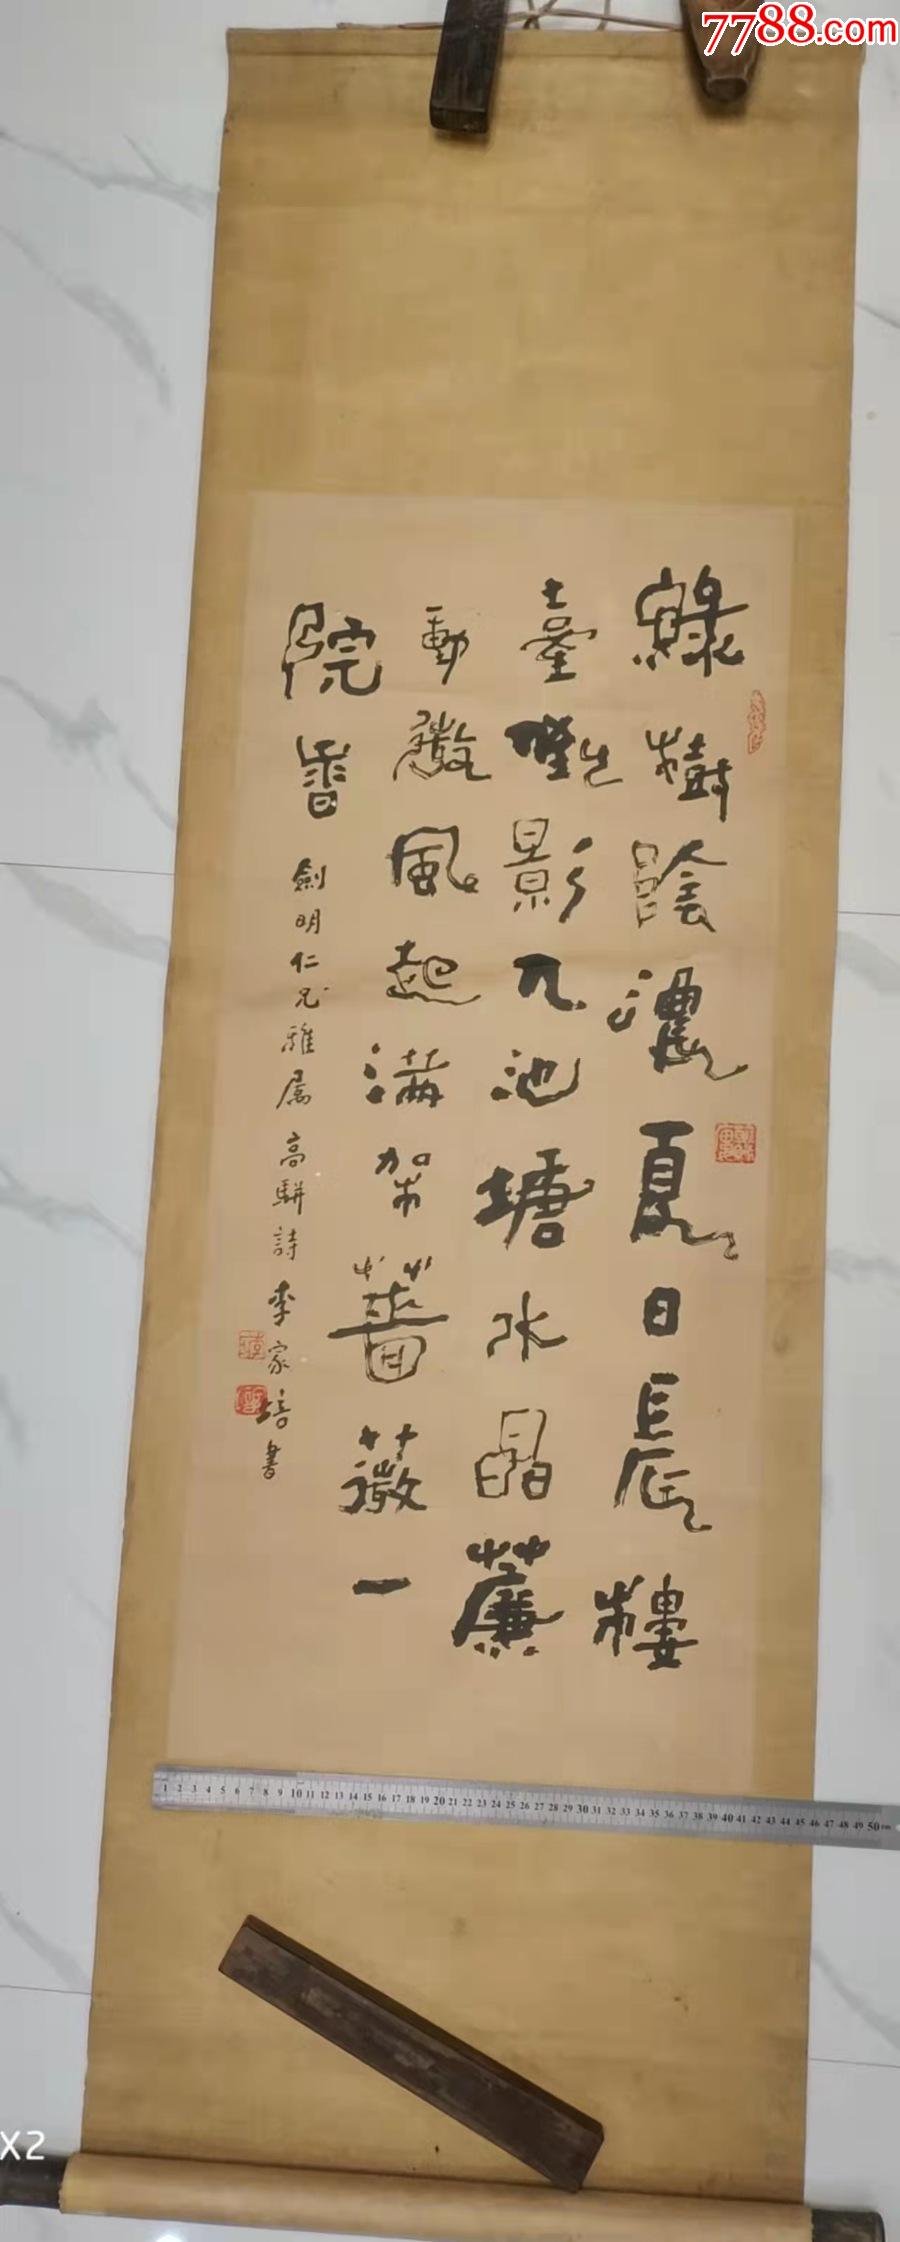 綠樹陰濃夏日長樓
臺倒影入池塘水晶簾
動微風起滿架薔薇一
院香
劍明仁兄雅屬 高駢詩 李家培書
7788.com
1 2 3 4 5 6 7 8 9 10 11 12 13 14 15 16 17 18 19 20 21 22 23 24 25 26 27 28 29 30 31 32 33 34 35 36 37 38 39 40 41 42 43 44 45 46 47 48 49 50
X2